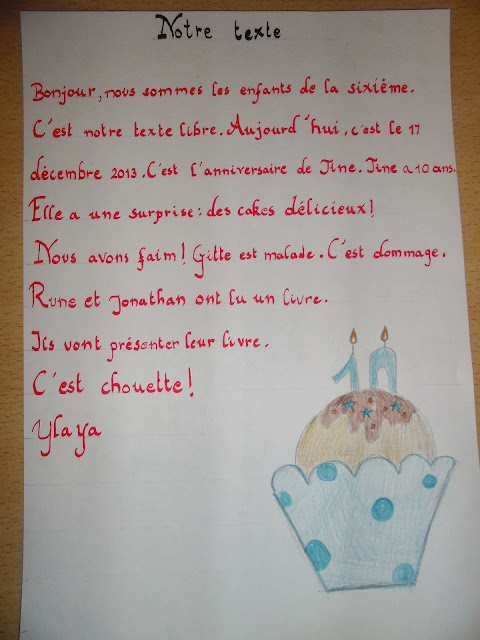 Notre texte
Bonjour, nous sommes les enfants de la sixième.
C'est notre texte libre. Aujourd'hui, c'est le 17
décembre 2013. C'est l'anniversaire de Tine. Tine a 10 ans.
Elle a une surprise: des cakes délicieux!
Nous avons faim! Gitte est malade. C'est dommage.
Rune et Jonathan ont lu un livre.
Ils vont présenter leur livre.
C'est chouette!
Ylaya
10